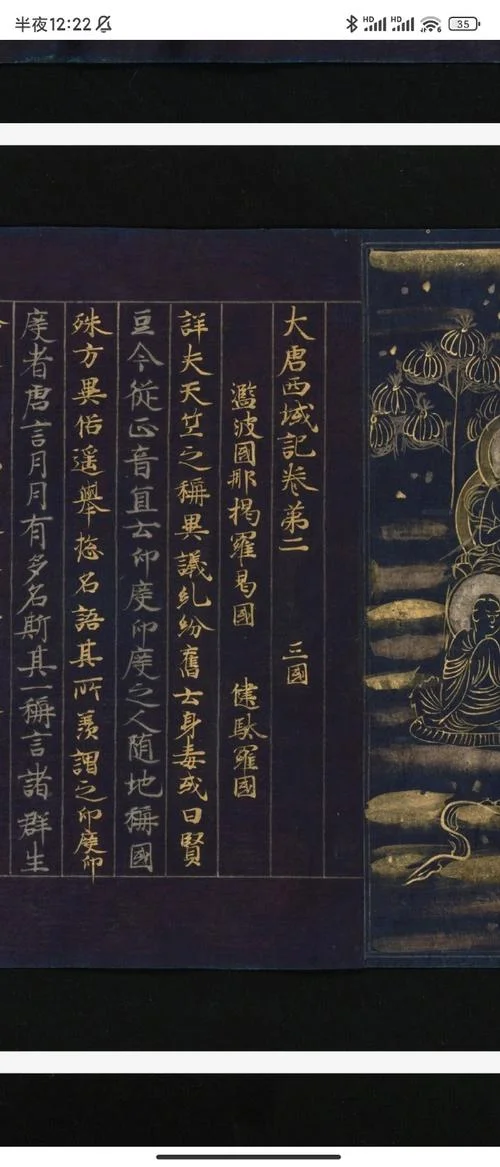 半夜12:22
HD HD 6 35
大唐西域記卷第二 三國
濫波國 那揭羅曷國 健馱羅國
詳夫天竺之稱異議糺紛舊云身毒或曰賢
豆今從正音宜云印度印度之人随地稱國
殊方異俗遥舉捴名語其所羨謂之印度印
度者唐言月月有多名斯其一稱言諸群生